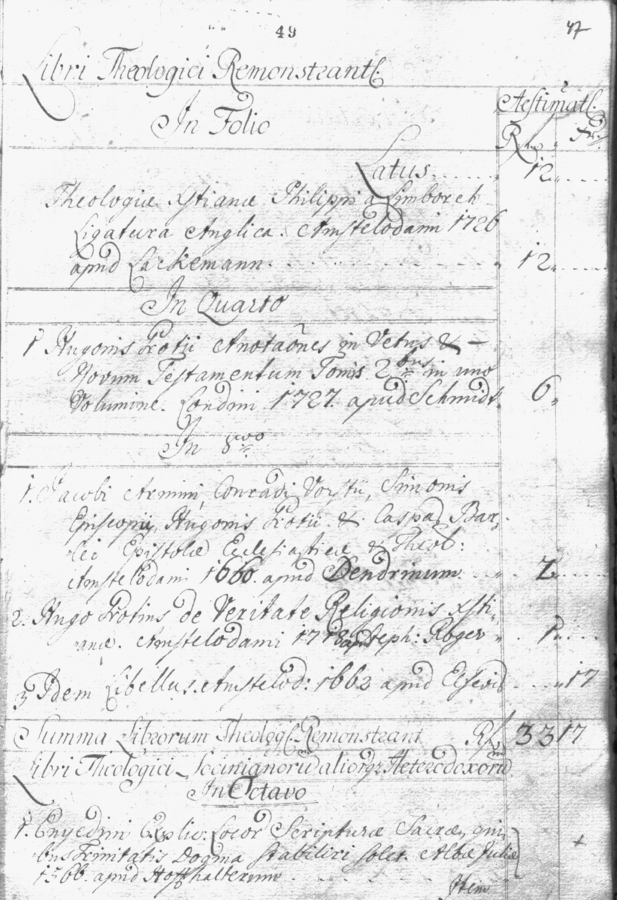 49
47
Libri Theologici Remonstrant.
Aestimat.
In Folio
Rh.
Latus 12
Theologia Xtiana Philippi a Limborch
Ligatura Anglica. Amstelodami 1726
apud Lackemann. 12
In Quarto
1 Hugonis Grotii Anotaões in Vetus &
Novum Testamentum Tomis 2bus in uno
Volumine. Londini 1727. apud Schmidt. 6
In 8vo
1. Jacobi Armini, Conradi Vorstii, Simonis
Episcopii, Hugonis Grotii & Caspar. Bar-
lei Epistolæ Ecclesiasticæ & Theol:
Amstelodami 1660. apud Dendrinum 2
2. Hugo Grotius de Veritate Religionis Xsti-
anæ. Amstelodami apud Roger 1
3 Idem Libellus. Amstelod: 1662 apud Elsevir 17
Summa Librorum Theolog. Remonstrant Rh 33 17
Libri Theologici Socinianorū aliorq; Heterodoxorū
In Octavo
1. Enyedini Explic. Locor Scripturæ Sacræ, qui-
bus Trinitatis Dogma stabiliri solet. Albæ Juliæ
apud Hoffhalterum
Item